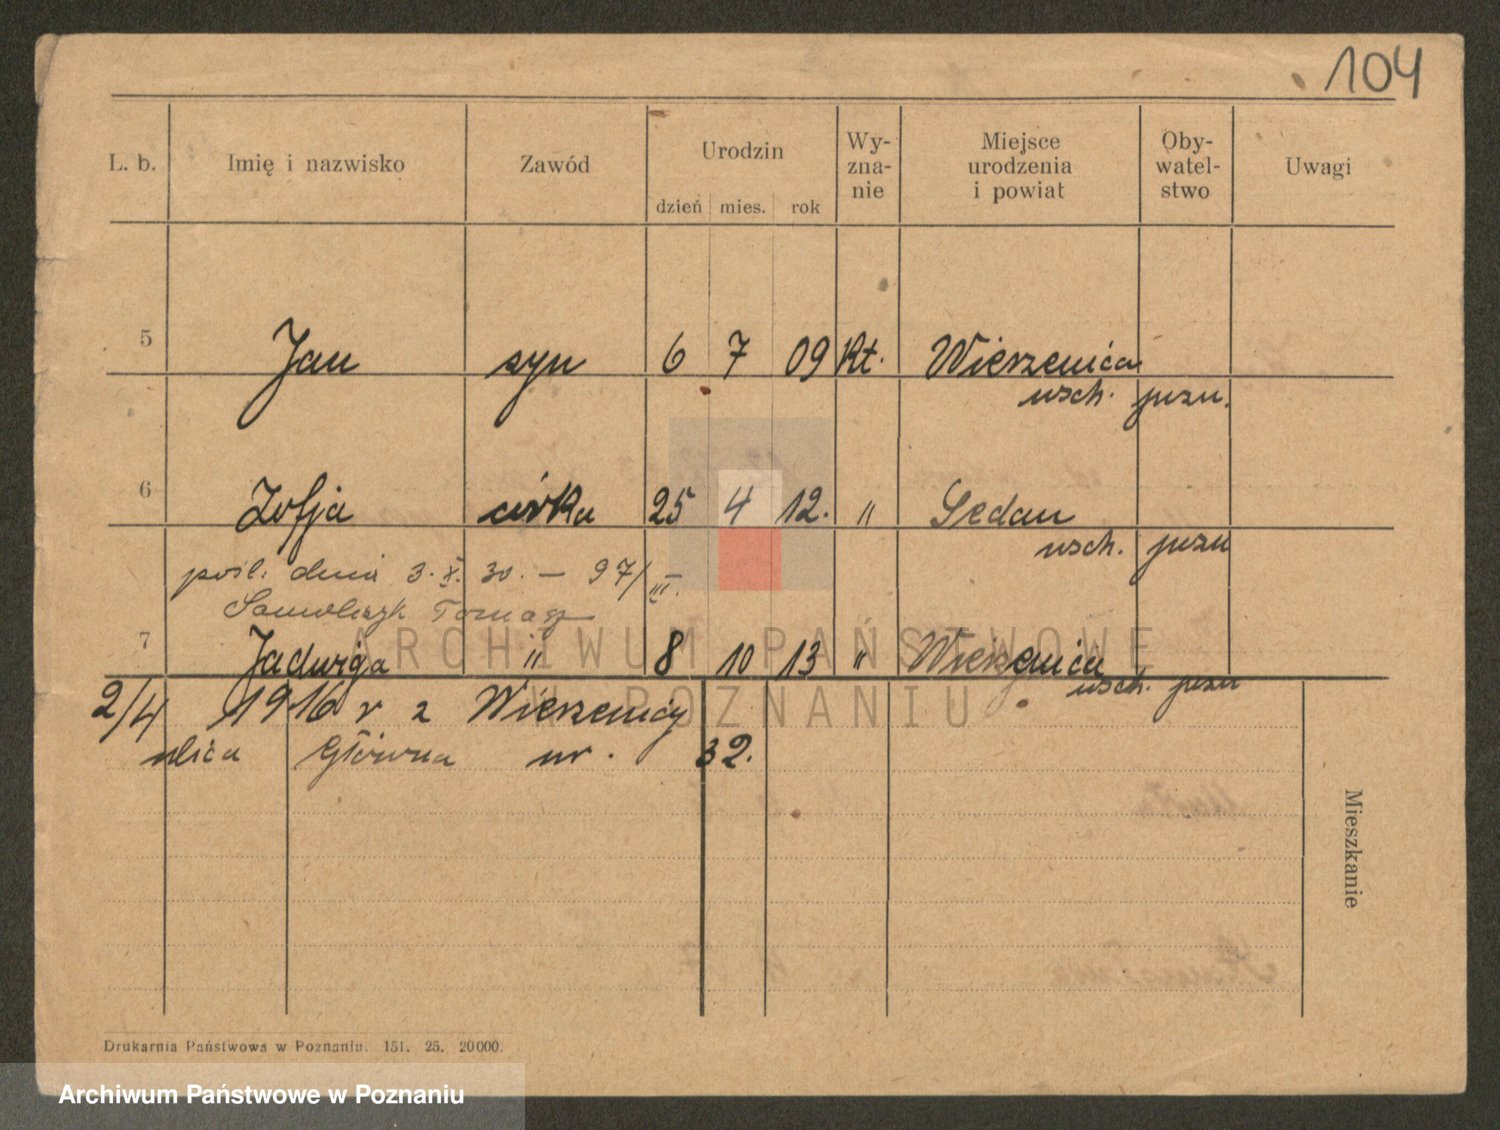 104
L. b. Imię i nazwisko Zawód Urodzin Wy-zna-nie Miejsce urodzenia i powiat Oby-watel-stwo Uwagi
dzień mies. rok
5 Jan syn 6 7 09 kt. Wierzenica
wsch. pozn.
6 Zofja córka 25 4 12. " Sedan
wsch. pozn
pośl. dnia 3. X. 30. — 97/III.
Tomasz
7 Jadwiga " 8 10 13 " Wierzenica
wsch. pozn
2/4 1916 r z Wierzenicy
ulica Główna nr. 32.
Mieszkanie
ARCHIWUM PAŃSTWOWE
W POZNANIU
Drukarnia Państwowa w Poznaniu. 151. 25. 20000.
Archiwum Państwowe w Poznaniu